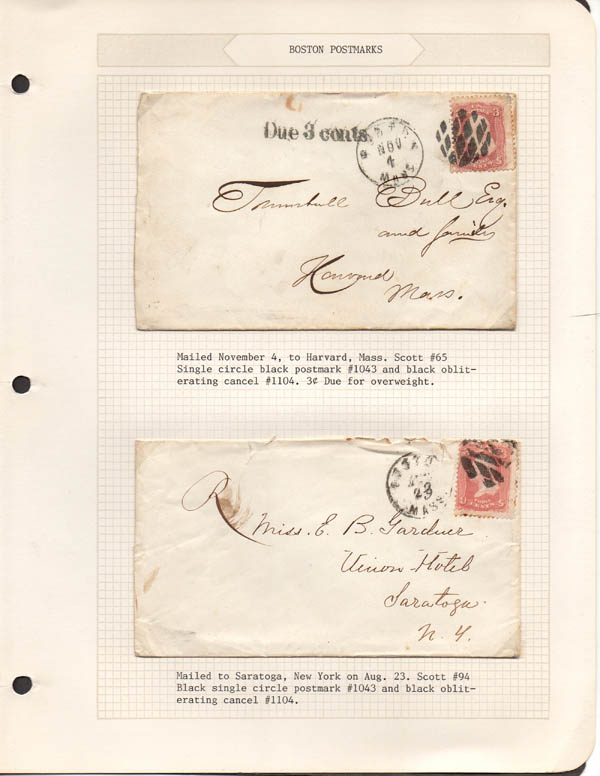 BOSTON POSTMARKS
Due 3 cents.
BOSTON
NOV
4
MASS
3
Trumbull Bull Esq.
and family
Harvard
Mass.
Mailed November 4, to Harvard, Mass. Scott #65
Single circle black postmark #1043 and black oblit-
erating cancel #1104. 3¢ Due for overweight.
BOSTO
23
MASS
Miss. E. B. Gardner
Union Hotel
Saratoga
N. Y.
Mailed to Saratoga, New York on Aug. 23. Scott #94
Black single circle postmark #1043 and black oblit-
erating cancel #1104.